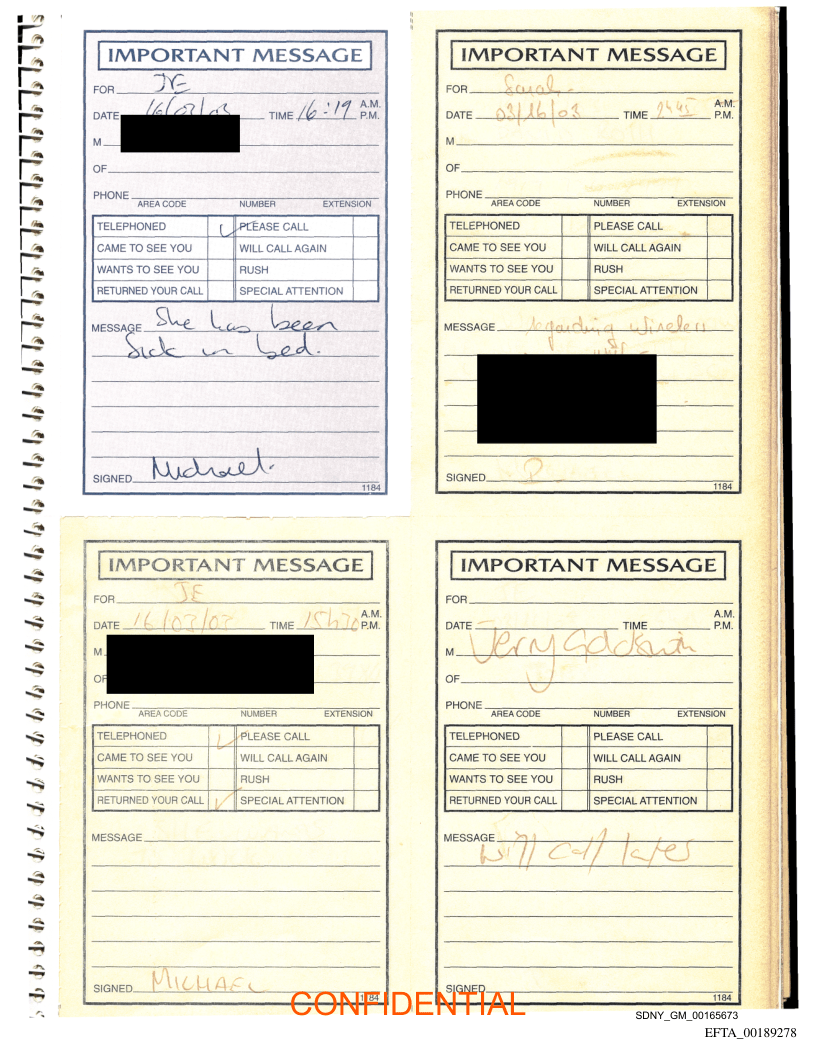 IMPORTANT MESSAGE
FOR JE
DATE 16/03/03 TIME 16:19 A.M. P.M.
M
OF
PHONE
AREA CODE NUMBER EXTENSION
TELEPHONED ✓ PLEASE CALL
CAME TO SEE YOU WILL CALL AGAIN
WANTS TO SEE YOU RUSH
RETURNED YOUR CALL SPECIAL ATTENTION
MESSAGE She has been
Sick in bed.
SIGNED Michael.
1184
IMPORTANT MESSAGE
FOR Sarah
DATE 03/16/03 TIME A.M. P.M.
M
OF
PHONE
AREA CODE NUMBER EXTENSION
TELEPHONED PLEASE CALL
CAME TO SEE YOU WILL CALL AGAIN
WANTS TO SEE YOU RUSH
RETURNED YOUR CALL SPECIAL ATTENTION
MESSAGE regarding wireless
SIGNED
1184
IMPORTANT MESSAGE
FOR JE
DATE 16/03/03 TIME 15h30 A.M. P.M.
M
OF
PHONE
AREA CODE NUMBER EXTENSION
TELEPHONED ✓ PLEASE CALL
CAME TO SEE YOU WILL CALL AGAIN
WANTS TO SEE YOU RUSH
RETURNED YOUR CALL ✓ SPECIAL ATTENTION
MESSAGE
SIGNED MICHAEL
1184
IMPORTANT MESSAGE
FOR
DATE TIME A.M. P.M.
M Jerry
OF
PHONE
AREA CODE NUMBER EXTENSION
TELEPHONED PLEASE CALL
CAME TO SEE YOU WILL CALL AGAIN
WANTS TO SEE YOU RUSH
RETURNED YOUR CALL SPECIAL ATTENTION
MESSAGE will call later
SIGNED
1184
CONFIDENTIAL
SDNY_GM_00165673
EFTA_00189278